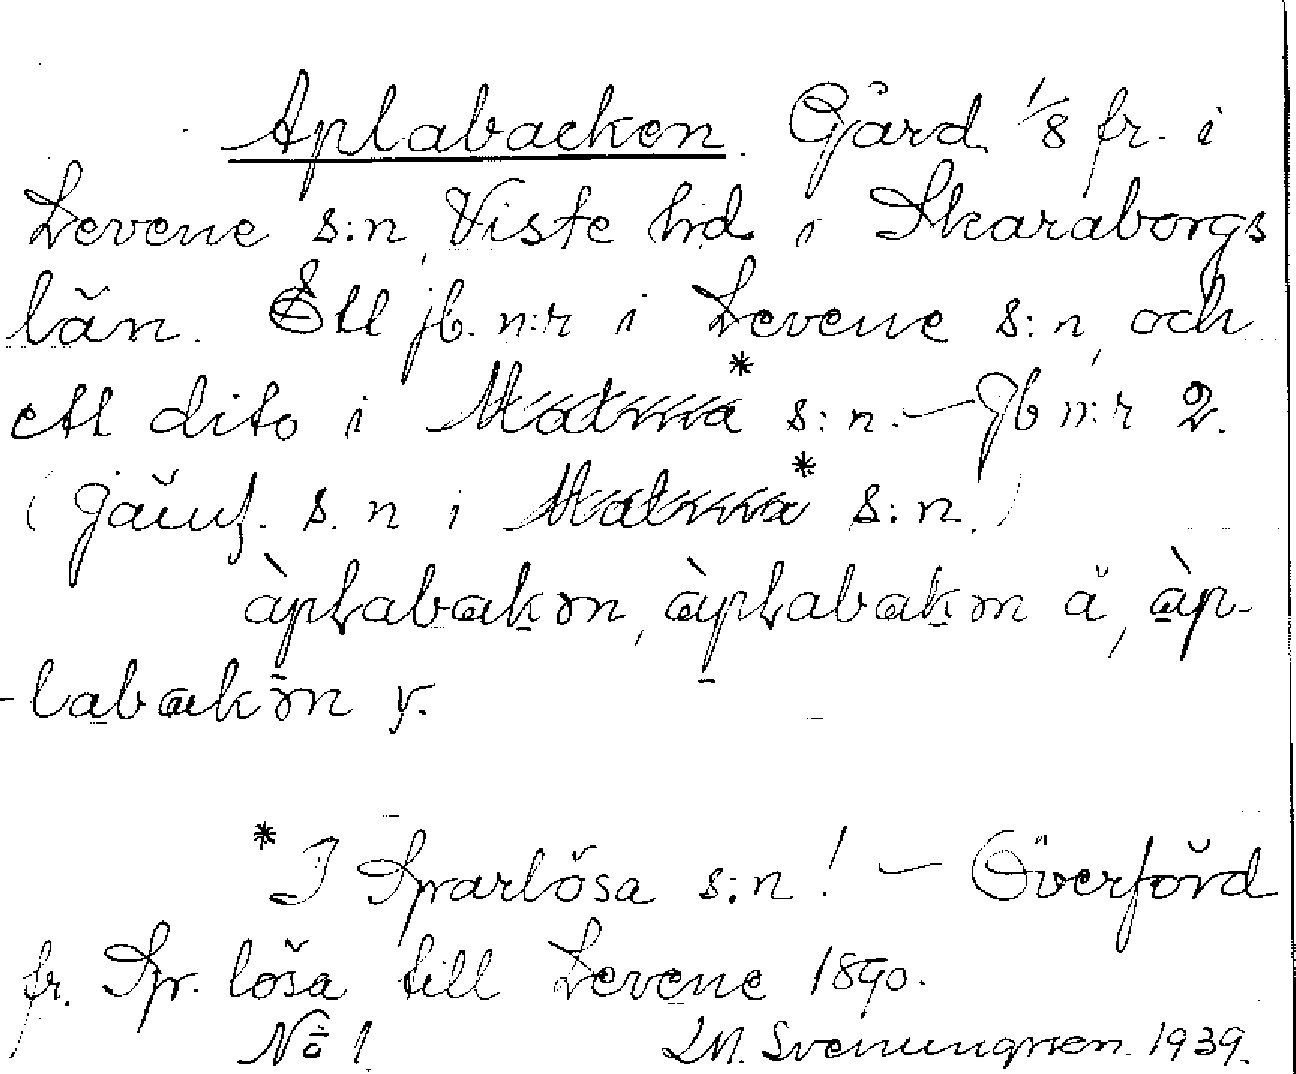 Aplabacken. Gård 1/8 fr. i
Levene s:n, Viste hd i Skaraborgs
län. Ett jb. n:r i Levene s:n, och
ett dito i * s:n. — Jb n:r 2.
(Jämf. s.n i * s:n.)
àplabakən, àplabakən å, àp-
-labakən y.
* I Sparlösa s:n! — Överförd
fr. Spr. lösa till Levene 1890.
No 1 I.M. Svenungsson. 1939.